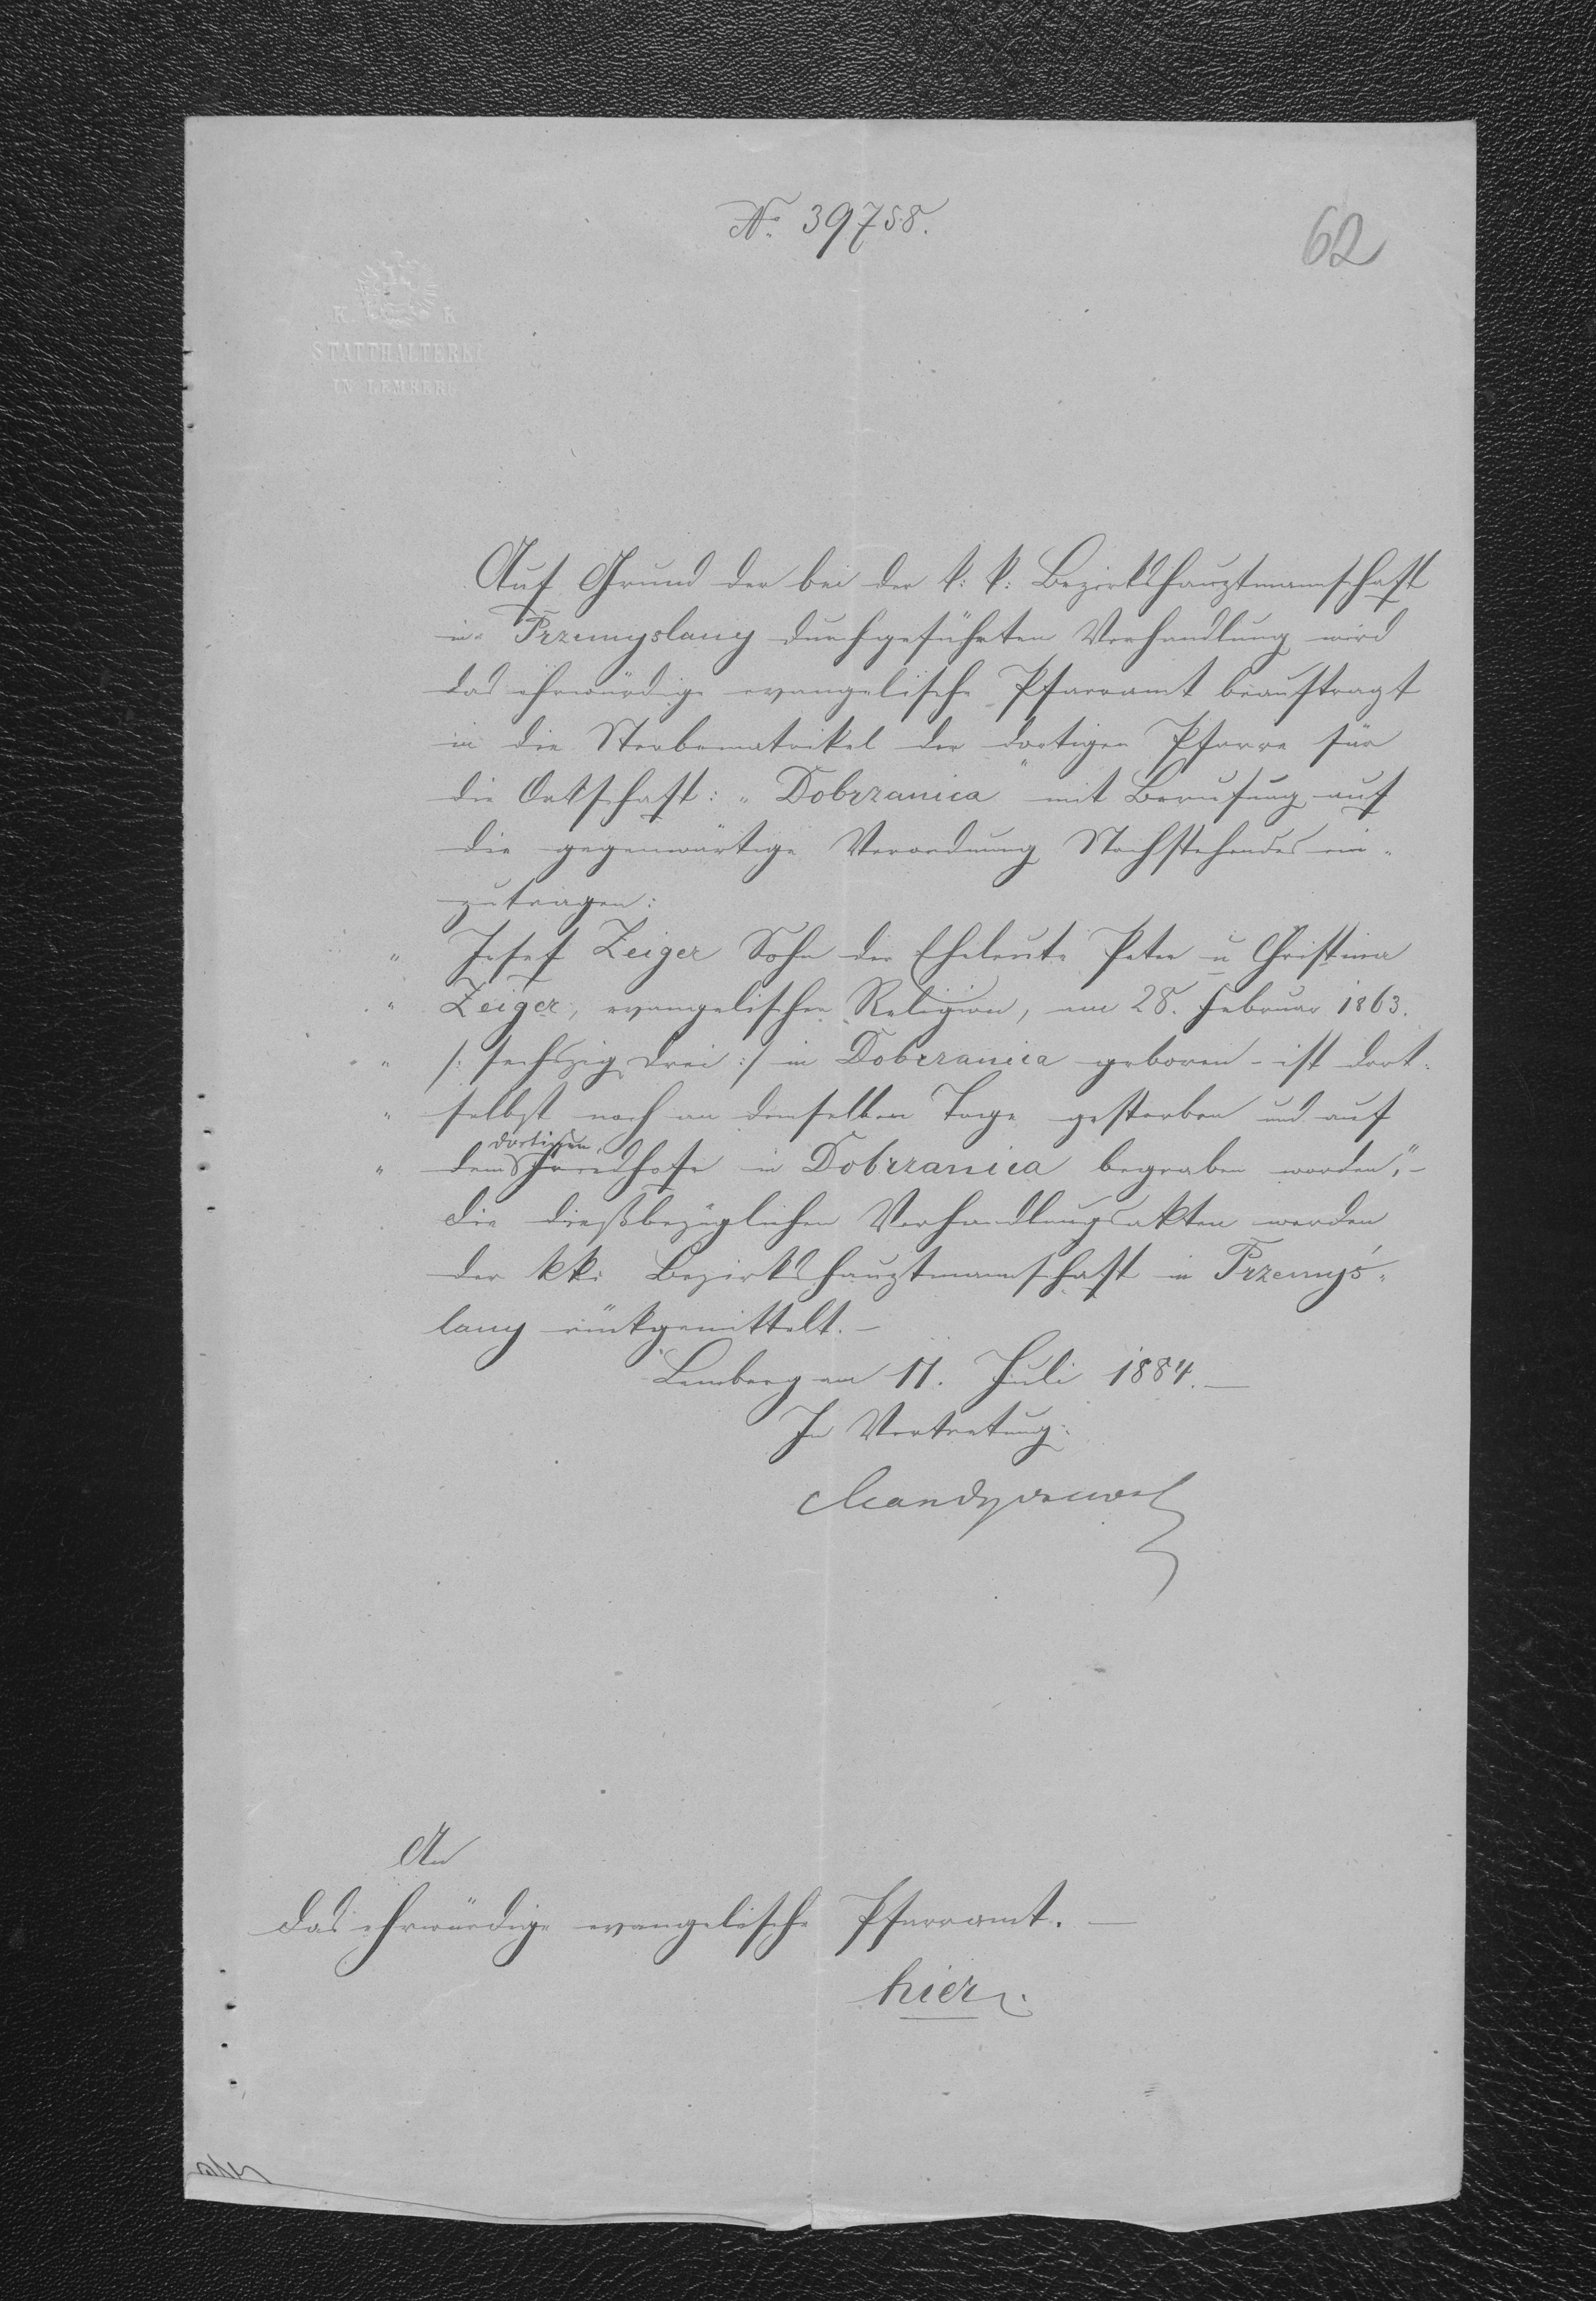 No. 39758.
62
K K
STATTHALTEREI
IN LEMBERG
Auf Grund der bei der k: k: Bezirkshauptmannschaft
in Przemyslany durchgeführten Verhandlung wird
das ehrwürdige evangelische Pfarramt beauftragt
in die Sterbematrikel der dortigen Pfarre für
die Ortschaft: „Dobrzanica“ mit Berufung auf
die gegenwärtige Verordnung Nachstehendes ein-
zutragen:
„ Josef Zeiger Sohn der Eheleute Peter u Christina
„ Zeiger, evangelischer Religion, am 28. Februar 1863.
„ /: sechszig drei :/ in Dobrzanica geboren - ist dort-
„ selbst noch an demselben Tage gestorben und auf
dortigen
„ dem Friedhofe in Dobrzanica begraben worden“,-
Die dießbezüglichen Verhandlungsakten werden
der kk: Bezirkshauptmannschaft in Przemyś-
lany rückgemittelt. -
Lemberg am 11. Juli 1884. -
In Vertretung:
An
das ehrwürdige evangelische Pfarramt. -
hier.